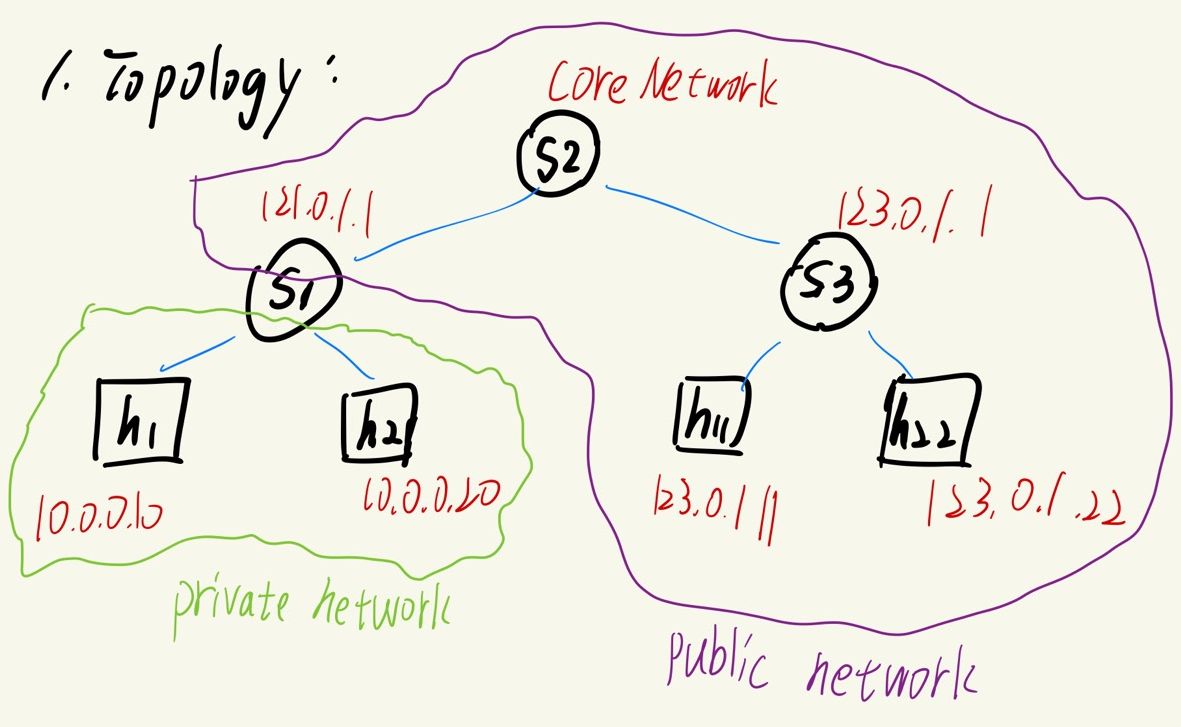 1. Topology:
Core Network
S2
121.0.1.1
123.0.1.1
S1
S3
h1
h2
h11
h22
10.0.0.10
10.0.0.20
123.0.1.11
123.0.1.22
private network
public network